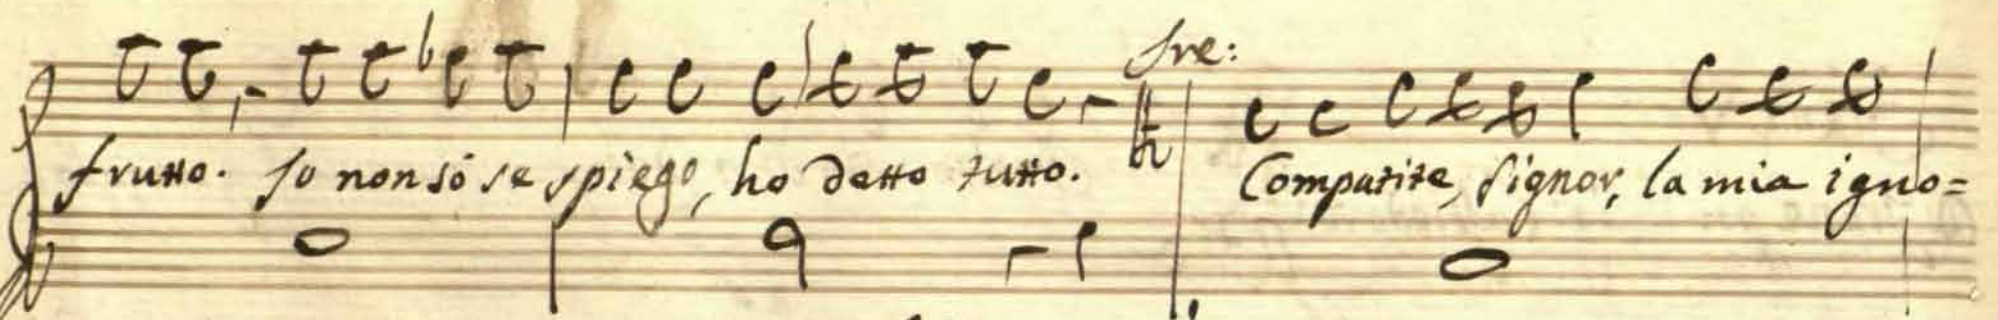 fre:
frutto. Io non sò se spiego, ho detto tutto. Compatite, Signor, la mia igno=